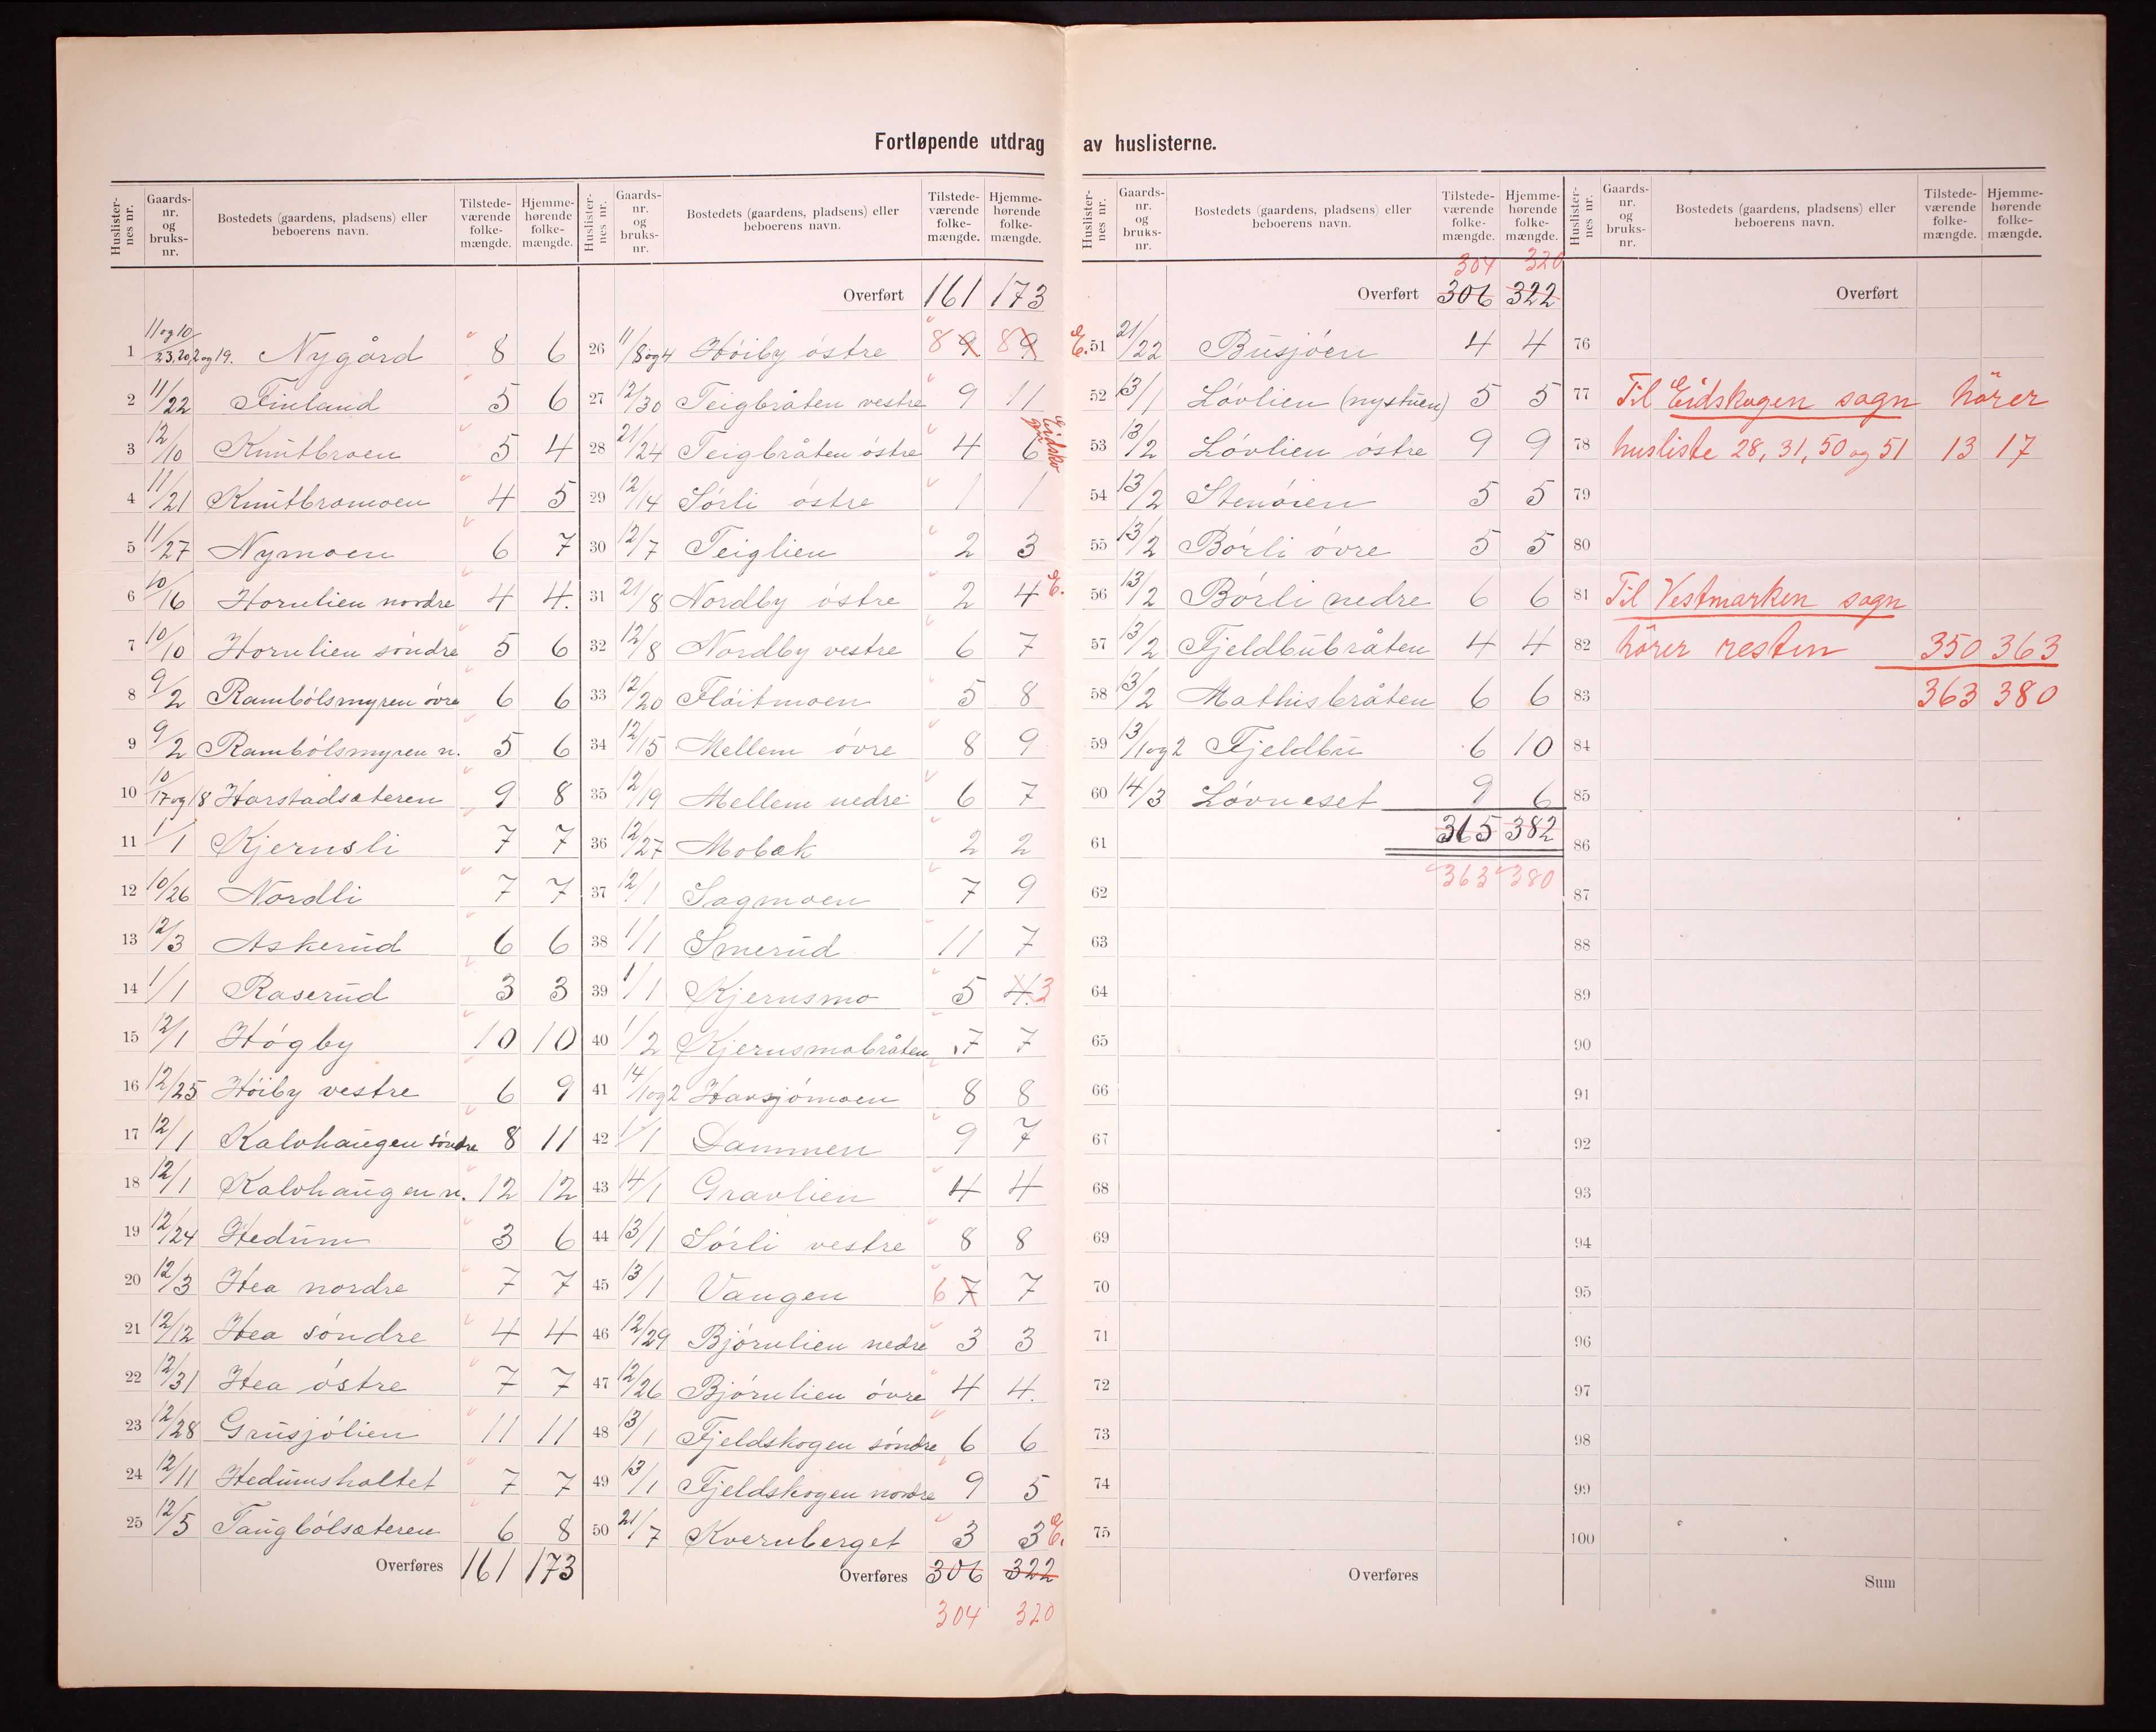 Fortløpende utdrag av huslisterne.
Huslisternes nr. | Gaards-nr. og bruks-nr. | Bostedets (gaardens, pladsens) eller beboerens navn. | Tilstedeværende folkemængde. | Hjemmehørende folkemængde.
1 11og10/23,20,2og19. Nygård 8 6
2 11/22 Finland 5 6
3 12/10 Knutbroen 5 4
4 11/21 Knutbromoen 4 5
5 11/27 Nymoen 6 7
6 10/16 Hornlien nordre 4 4.
7 10/10 Hornlien søndre 5 6
8 9/2 Rambølsmyren øvre 6 6
9 9/2 Rambølsmyren n. 5 6
10 10/17og18 Harstadsæteren 9 8
11 1/1 Kjernsli 7 7
12 10/26 Nordli 7 7
13 12/3 Askerud 6 6
14 1/1 Raserud 3 3
15 12/1 Høgby 10 10
16 12/25 Høiby vestre 6 9
17 12/1 Kalvhaugen søndre 8 11
18 12/1 Kalvhaugen n. 12 12
19 12/24 Hedum 3 6
20 12/3 Hea nordre 7 7
21 12/12 Hea søndre 4 4
22 12/31 Hea østre 7 7
23 12/28 Grusjølien 11 11
24 12/11 Hedumsholtet 7 7
25 12/5 Taugbølsæteren 6 8
Overføres 161 173
Huslisternes nr. | Gaards-nr. og bruks-nr. | Bostedets (gaardens, pladsens) eller beboerens navn. | Tilstedeværende folkemængde. | Hjemmehørende folkemængde.
Overført 161 173
26 11/8og4 Høiby østre 8 9 8 9
27 12/30 Teigbråten vestre 9 11
28 21/24 Teigbråten østre 4 6 Eidsko
29 12/4 Sørli østre 1 1
30 12/7 Teiglien 2 3
31 21/8 Nordby østre 2 4 E.
32 12/8 Nordby vestre 6 7
33 12/20 Fløitmoen 5 8
34 12/15 Mellem øvre 8 9
35 12/19 Mellem nedre 6 7
36 12/27 Mobæk 2 2
37 12/1 Sagmoen 7 9
38 1/1 Smerud 11 7
39 1/1 Kjernsmo 5 4. 3
40 1/2 Kjernsmobråten 7 7
41 14/1og2 Havsjømoen 8 8
42 1/1 Dammen 9 7
43 14/1 Gravlien 4 4
44 13/1 Sørli vestre 8 8
45 13/1 Vangen 6 7 7
46 12/29 Bjørnlien nedre 3 3
47 12/26 Bjørnlien øvre 4 4.
48 13/1 Fjeldskogen søndre 6 6
49 13/1 Fjeldskogen nordre 9 5
50 21/7 Kvernberget 3 3 E.
Overføres 306 322
304 320
Huslisternes nr. | Gaards-nr. og bruks-nr. | Bostedets (gaardens, pladsens) eller beboerens navn. | Tilstedeværende folkemængde. | Hjemmehørende folkemængde.
304 320
Overført 306 322
E. 51 21/22 Busjøen 4 4
52 13/1 Løvlien (nystuen) 5 5
53 13/2 Løvlien østre 9 9
54 13/2 Stenøien 5 5
55 13/2 Børli øvre 5 5
56 13/2 Børli nedre 6 6
57 13/2 Fjeldbubråten 4 4
58 13/2 Mathisbråten 6 6
59 13/1og2 Fjeldbu 6 10
60 14/3 Løvneset 9 6
61 365 382
62 363 380
63
64
65
66
67
68
69
70
71
72
73
74
75
Overføres
Huslisternes nr. | Gaards-nr. og bruks-nr. | Bostedets (gaardens, pladsens) eller beboerens navn. | Tilstedeværende folkemængde. | Hjemmehørende folkemængde.
Overført
76
77 Til Eidskogen sogn hører
78 husliste 28, 31, 50 og 51 13 17
79
80
81 Til Vestmarken sogn
82 hører resten 350 363
83 363 380
84
85
86
87
88
89
90
91
92
93
94
95
96
97
98
99
100
Sum